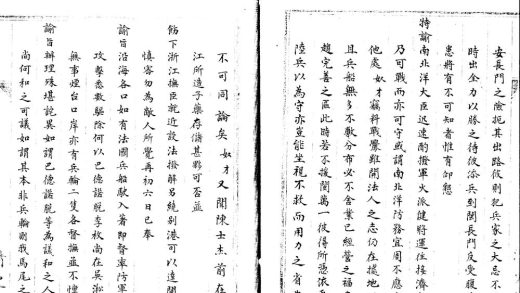 安長門之險扼其出路彼則犯兵家之大忌不
時出全力以勝之待彼添兵到閩長門反受腹
患將有不可知者惟有仰懇
特諭南北洋大臣迅速酌撥軍火派健將運往接濟
乃可戰而亦可守或謂南北洋防務宜周不應
他處奴才竊料戰釁雖開法人之志仍在據地
且兵船無多不敷分布必不舍業已經營之福
趨完善之區此時若不援閩萬一彼得所憑依兵
陸兵以為守亦豈能坐視不救而用力之省
不可同論矣奴才又聞陳士杰前在
江所造子藥存儲甚夥可否並
飭下浙江撫臣就近設法撥解另繞別港可以達閩
慎密勿為敵人所覺再初六日已奉
諭旨沿海各口如有法國兵船駛入著即督率防軍
攻擊悉數驅除何以巴德諾脫李梅尚在吳淞
無事煙台口岸亦有兵輪二隻各督撫並不惶
諭旨辦理殊堪詫異如謂巴德諾脫等為議和之人
尚何和之可議如謂其本非兵輪則我馬尾之